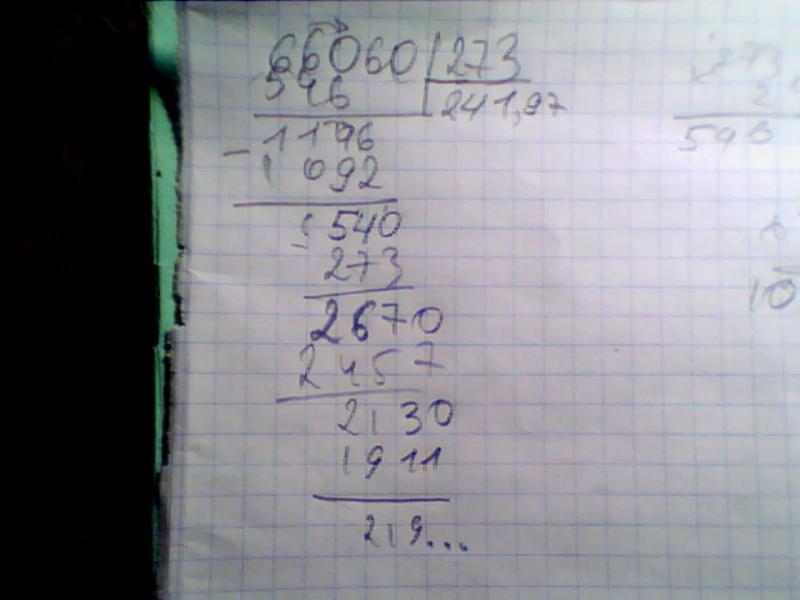 66060 273
546 241,97
- 1146
1092
540
273
2670
2457
2130
1911
219...
× 273
2
546
×
10